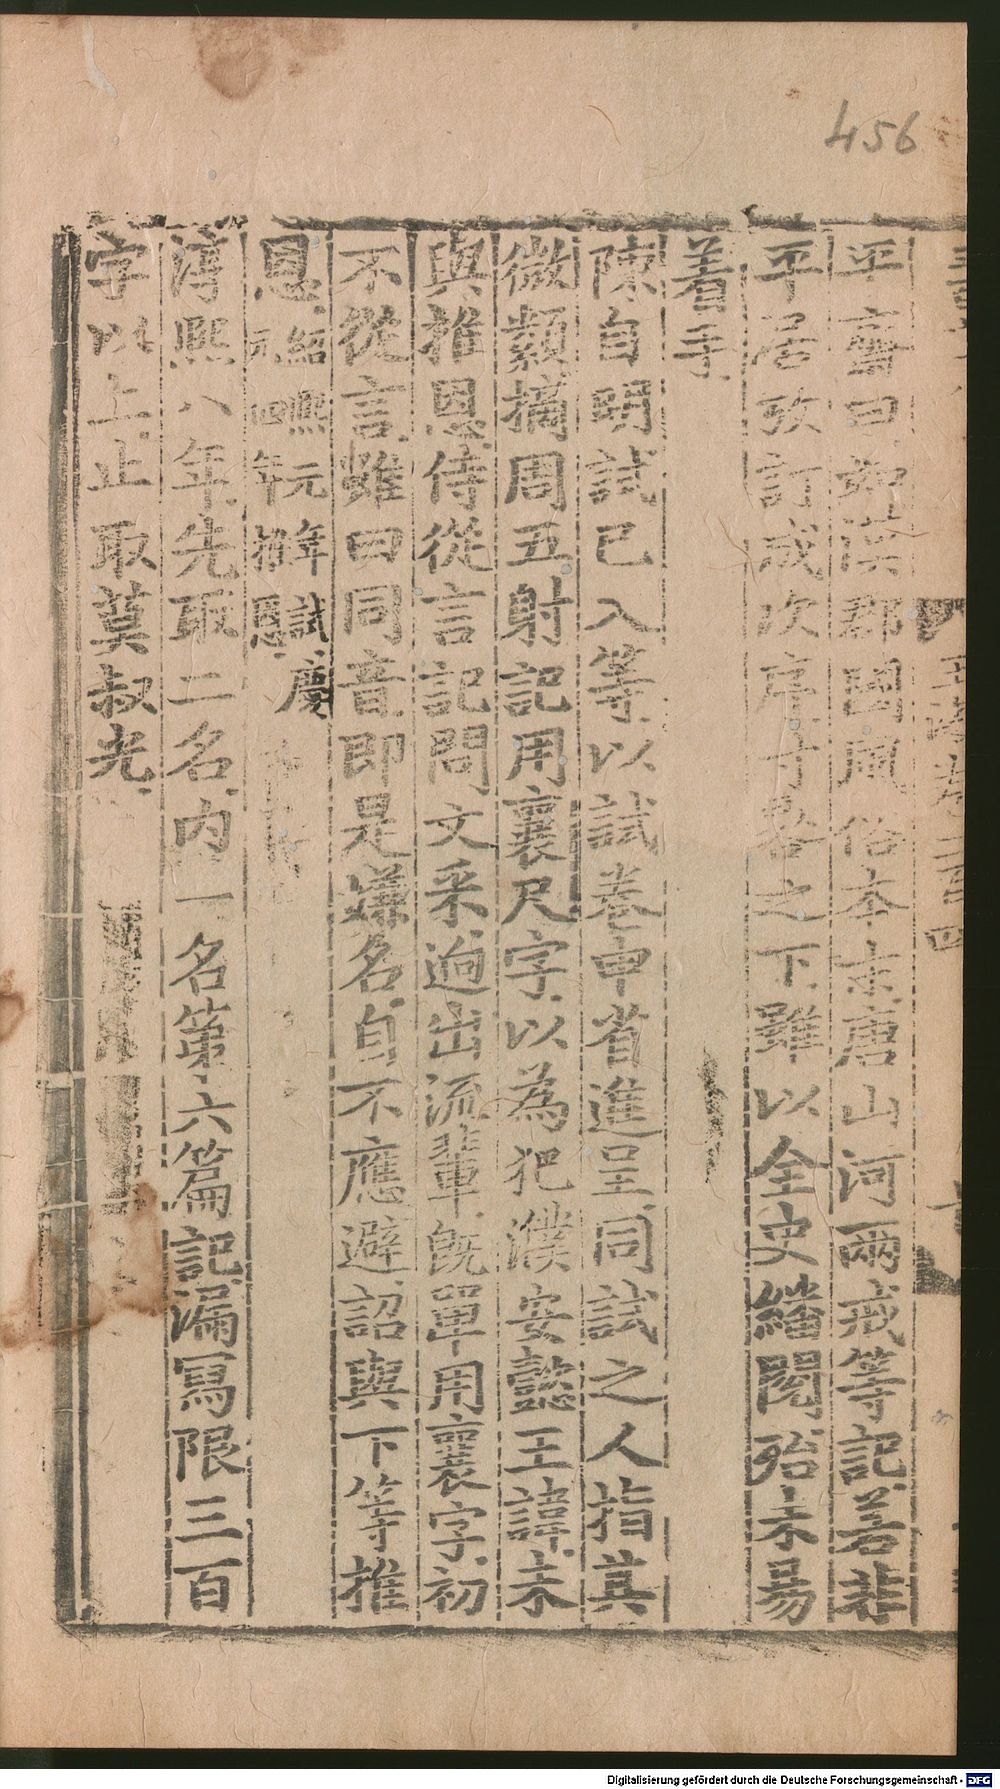 456
平齋曰如漢郡國風俗本末唐山河兩戒等記若非
平居攷訂成次序寸晷之下雖以全史繙閱殆未易
着手
陳自明試已入等以試卷申省進呈同試之人指其
微纇摘周五射記用襄尺字以為犯濮安懿王諱未
與推恩侍從言記問文采逈出流輩旣單用襄字初
不從言雖曰同音即是嫌名自不應避詔與下等推
恩紹熙元年試慶元四年推恩
淳熙八年先取二名內一名第六篇記漏寫限三百
字以上止取莫叔光
Digitalisierung gefördert durch die Deutsche Forschungsgemeinschaft - DFG